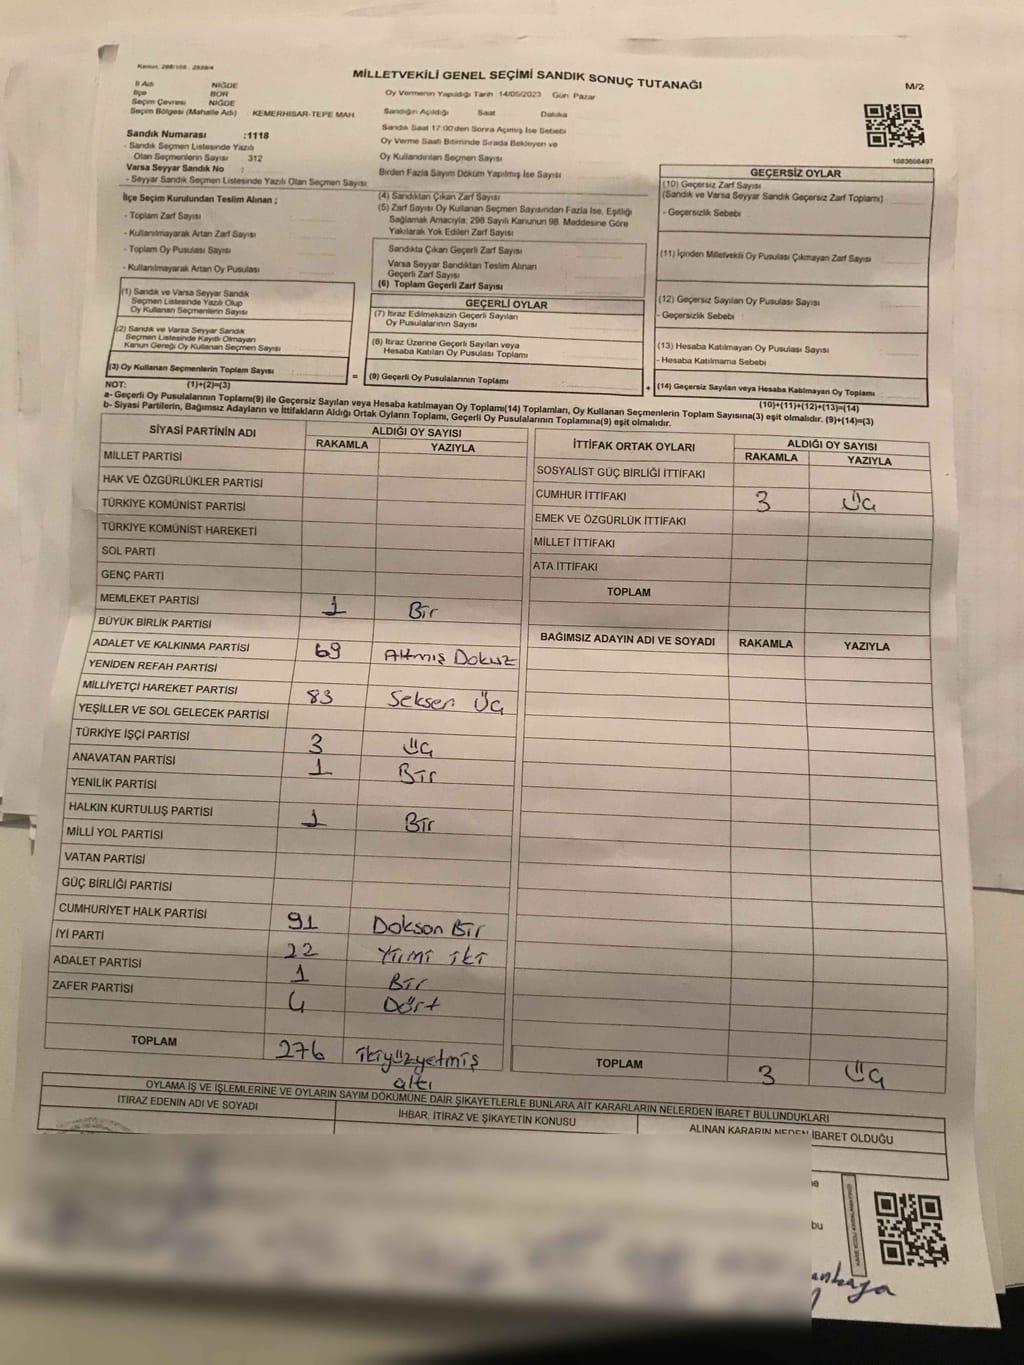 Kanun, 298/105 , 2839/4
MİLLETVEKİLİ GENEL SEÇİMİ SANDIK SONUÇ TUTANAĞI
M/2
İl Adı NİĞDE
İlçe BOR
Seçim Çevresi NİĞDE
Seçim Bölgesi (Mahalle Adı) KEMERHİSAR-TEPE MAH
Sandık Numarası :1118
- Sandık Seçmen Listesinde Yazılı
Olan Seçmenlerin Sayısı 312
Varsa Seyyar Sandık No :
- Seyyar Sandık Seçmen Listesinde Yazılı Olan Seçmen Sayısı
Oy Vermenin Yapıldığı Tarih 14/05/2023 Gün: Pazar
Sandığın Açıldığı Saat Dakika
Sandık Saat 17:00'den Sonra Açılmış İse Sebebi
Oy Verme Saati Bitiminde Sırada Bekleyen ve
Oy Kullandırılan Seçmen Sayısı
Birden Fazla Sayım Döküm Yapılmış İse Sayısı
1083608497
İlçe Seçim Kurulundan Teslim Alınan ;
- Toplam Zarf Sayısı
- Kullanılmayarak Artan Zarf Sayısı
- Toplam Oy Pusulası Sayısı
- Kullanılmayarak Artan Oy Pusulası
(1) Sandık ve Varsa Seyyar Sandık
Seçmen Listesinde Yazılı Olup
Oy Kullanan Seçmenlerin Sayısı
(2) Sandık ve Varsa Seyyar Sandık
Seçmen Listesinde Kayıtlı Olmayan
Kanun Gereği Oy Kullanan Seçmen Sayısı
(3) Oy Kullanan Seçmenlerin Toplam Sayısı
(4) Sandıktan Çıkan Zarf Sayısı
(5) Zarf Sayısı Oy Kullanan Seçmen Sayısından Fazla İse, Eşitliği
Sağlamak Amacıyla, 298 Sayılı Kanunun 98. Maddesine Göre
Yakılarak Yok Edilen Zarf Sayısı
Sandıkta Çıkan Geçerli Zarf Sayısı
Varsa Seyyar Sandıktan Teslim Alınan
Geçerli Zarf Sayısı
(6) Toplam Geçerli Zarf Sayısı
GEÇERLİ OYLAR
(7) İtiraz Edilmeksizin Geçerli Sayılan
Oy Pusulalarının Sayısı
(8) İtiraz Üzerine Geçerli Sayılan veya
Hesaba Katılan Oy Pusulası Toplamı
= (9) Geçerli Oy Pusulalarının Toplamı
GEÇERSİZ OYLAR
(10) Geçersiz Zarf Sayısı
(Sandık ve Varsa Seyyar Sandık Geçersiz Zarf Toplamı)
- Geçersizlik Sebebi
(11) İçinden Milletvekili Oy Pusulası Çıkmayan Zarf Sayısı
(12) Geçersiz Sayılan Oy Pusulası Sayısı
- Geçersizlik Sebebi
(13) Hesaba Katılmayan Oy Pusulası Sayısı
- Hesaba Katılmama Sebebi
+ (14) Geçersiz Sayılan veya Hesaba Katılmayan Oy Toplamı
NOT: (1)+(2)=(3)
(10)+(11)+(12)+(13)=(14)
a- Geçerli Oy Pusulalarının Toplamı(9) ile Geçersiz Sayılan veya Hesaba katılmayan Oy Toplamı(14) Toplamları, Oy Kullanan Seçmenlerin Toplam Sayısına(3) eşit olmalıdır. (9)+(14)=(3)
b- Siyasi Partilerin, Bağımsız Adayların ve İttifakların Aldığı Ortak Oyların Toplamı, Geçerli Oy Pusulalarının Toplamına(9) eşit olmalıdır.
SİYASİ PARTİNİN ADI ALDIĞI OY SAYISI
RAKAMLA YAZIYLA
MİLLET PARTİSİ
HAK VE ÖZGÜRLÜKLER PARTİSİ
TÜRKİYE KOMÜNİST PARTİSİ
TÜRKİYE KOMÜNİST HAREKETİ
SOL PARTİ
GENÇ PARTİ
MEMLEKET PARTİSİ 1 Bir
BÜYÜK BİRLİK PARTİSİ
ADALET VE KALKINMA PARTİSİ 69 Altmış Dokuz
YENİDEN REFAH PARTİSİ
MİLLİYETÇİ HAREKET PARTİSİ 83 Seksen Üç
YEŞİLLER VE SOL GELECEK PARTİSİ
TÜRKİYE İŞÇİ PARTİSİ 3 Üç
ANAVATAN PARTİSİ 1 Bir
YENİLİK PARTİSİ
HALKIN KURTULUŞ PARTİSİ 1 Bir
MİLLİ YOL PARTİSİ
VATAN PARTİSİ
GÜÇ BİRLİĞİ PARTİSİ
CUMHURİYET HALK PARTİSİ 91 Doksan Bir
İYİ PARTİ 22 Yirmi iki
ADALET PARTİSİ 1 Bir
ZAFER PARTİSİ 4 Dört
TOPLAM 276 ikiyüzyetmiş
altı
İTTİFAK ORTAK OYLARI ALDIĞI OY SAYISI
RAKAMLA YAZIYLA
SOSYALİST GÜÇ BİRLİĞİ İTTİFAKI
CUMHUR İTTİFAKI 3 Üç
EMEK VE ÖZGÜRLÜK İTTİFAKI
MİLLET İTTİFAKI
ATA İTTİFAKI
TOPLAM
BAĞIMSIZ ADAYIN ADI VE SOYADI RAKAMLA YAZIYLA
TOPLAM 3 Üç
OYLAMA İŞ VE İŞLEMLERİNE VE OYLARIN SAYIM DÖKÜMÜNE DAİR ŞİKAYETLERLE BUNLARA AİT KARARLARIN NELERDEN İBARET BULUNDUKLARI
İTİRAZ EDENİN ADI VE SOYADI İHBAR, İTİRAZ VE ŞİKAYETİN KONUSU ALINAN KARARIN NEDEN İBARET OLDUĞU
bu